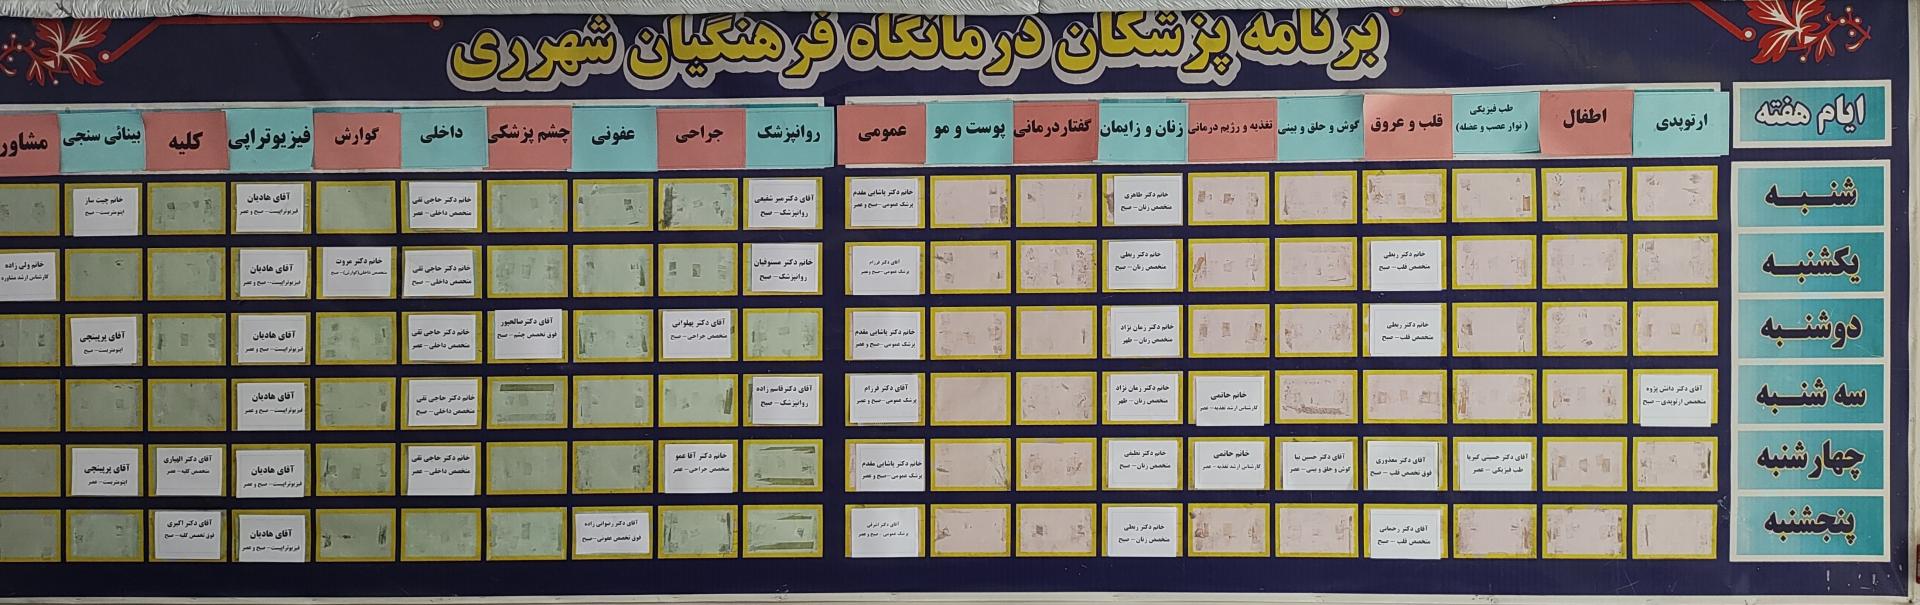 برنامه پزشکان درمانگاه فرهنگیان شهرری
ایام هفته
ارتوپدی
اطفال
طب فیزیکی
( نوار عصب و عضله )
قلب و عروق
گوش و حلق و بینی
تغذیه و رژیم درمانی
زنان و زایمان
گفتاردرمانی
پوست و مو
عمومی
روانپزشک
جراحی
عفونی
چشم پزشکی
داخلی
گوارش
فیزیوتراپی
کلیه
بینائی سنجی
مشاور
شنبه
خانم دکتر طاهری
متخصص زنان – صبح
خانم دکتر پاشایی مقدم
پزشک عمومی – صبح و عصر
آقای دکتر میر شفیعی
روانپزشک – صبح
خانم دکتر حاجی تقی
متخصص داخلی – عصر
آقای هادیان
فیزیوتراپیست – صبح و عصر
خانم چیت ساز
اپتومتریست – صبح
یکشنبه
خانم دکتر ربطی
متخصص قلب – صبح
خانم دکتر ربطی
متخصص زنان – صبح
آقای دکتر فرزام
پزشک عمومی – صبح وعصر
خانم دکتر مستوفیان
روانپزشک – صبح
خانم دکتر حاجی تقی
متخصص داخلی – صبح
خانم دکتر مروت
متخصص داخلی(گوارش) – صبح
آقای هادیان
فیزیوتراپیست – صبح و عصر
خانم ولی زاده
کارشناس ارشد مشاوره
دوشنبه
خانم دکتر ربطی
متخصص قلب – صبح
خانم دکتر زمان نژاد
متخصص زنان – ظهر
خانم دکتر پاشایی مقدم
پزشک عمومی – صبح و عصر
آقای دکتر پهلوانی
متخصص جراحی – صبح
آقای دکتر صالحپور
فوق تخصص چشم – صبح
خانم دکتر حاجی تقی
متخصص داخلی – عصر
آقای هادیان
فیزیوتراپیست – صبح و عصر
آقای پرپینچی
اپتومتریست – صبح
سه شنبه
آقای دکتر دانش پژوه
متخصص ارتوپدی – صبح
خانم حاتمی
کارشناس ارشد تغذیه – عصر
خانم دکتر زمان نژاد
متخصص زنان – ظهر
آقای دکتر فرزام
پزشک عمومی – صبح و عصر
آقای دکتر قاسم زاده
روانپزشک – صبح
خانم دکتر حاجی تقی
متخصص داخلی – صبح
آقای هادیان
فیزیوتراپیست – صبح و عصر
چهارشنبه
آقای دکتر حسینی کبریا
طب فیزیکی – عصر
آقای دکتر معذوری
فوق تخصص قلب – صبح
آقای دکتر حسین نیا
گوش و حلق و بینی – عصر
خانم حاتمی
کارشناس ارشد تغذیه – عصر
خانم دکتر نظیفی
متخصص زنان – صبح
خانم دکتر پاشایی مقدم
پزشک عمومی – صبح و عصر
خانم دکتر آقا عمو
متخصص جراحی – عصر
خانم دکتر حاجی تقی
متخصص داخلی – عصر
آقای هادیان
فیزیوتراپیست – صبح و عصر
آقای دکتر الهیاری
متخصص کلیه – عصر
آقای پرپینچی
اپتومتریست – صبح و عصر
پنجشنبه
آقای دکتر رحمانی
متخصص قلب – صبح
خانم دکتر ربطی
متخصص زنان – صبح
آقای دکتر اشرفی
پزشک عمومی – صبح و عصر
آقای دکتر رضوانی زاده
فوق تخصص عفونی – صبح
آقای هادیان
فیزیوتراپیست – صبح و عصر
آقای دکتر اکبری
فوق تخصص کلیه – صبح